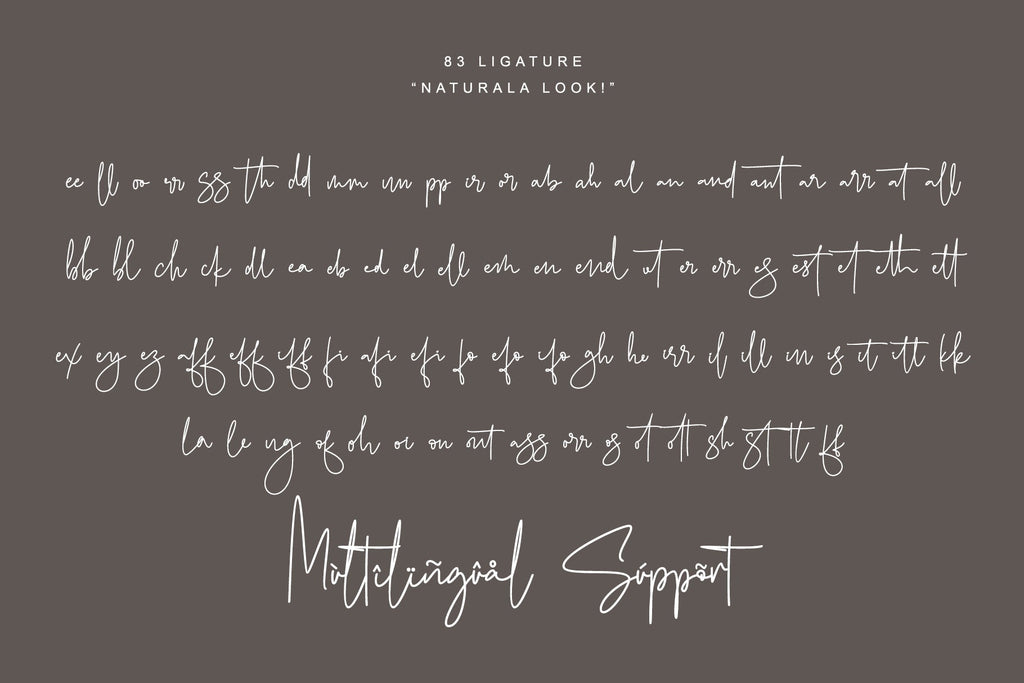 83 LIGATURE
“NATURALA LOOK!”
ee ll oo rr ss th dd mm nn pp ir or ab ah al an and ant ar arr at all
bb bl ch ck dl ea eb ed el ell em en end ut er err es est et eth ett
ex ey ez aff eff iff fi afi efi fo efo ifo gh he irr il ill in is it itt kk
la le ng of oh oi on out ass orr os ot ott sh st tt ff
Mùltîlïñgûål Súppõrt